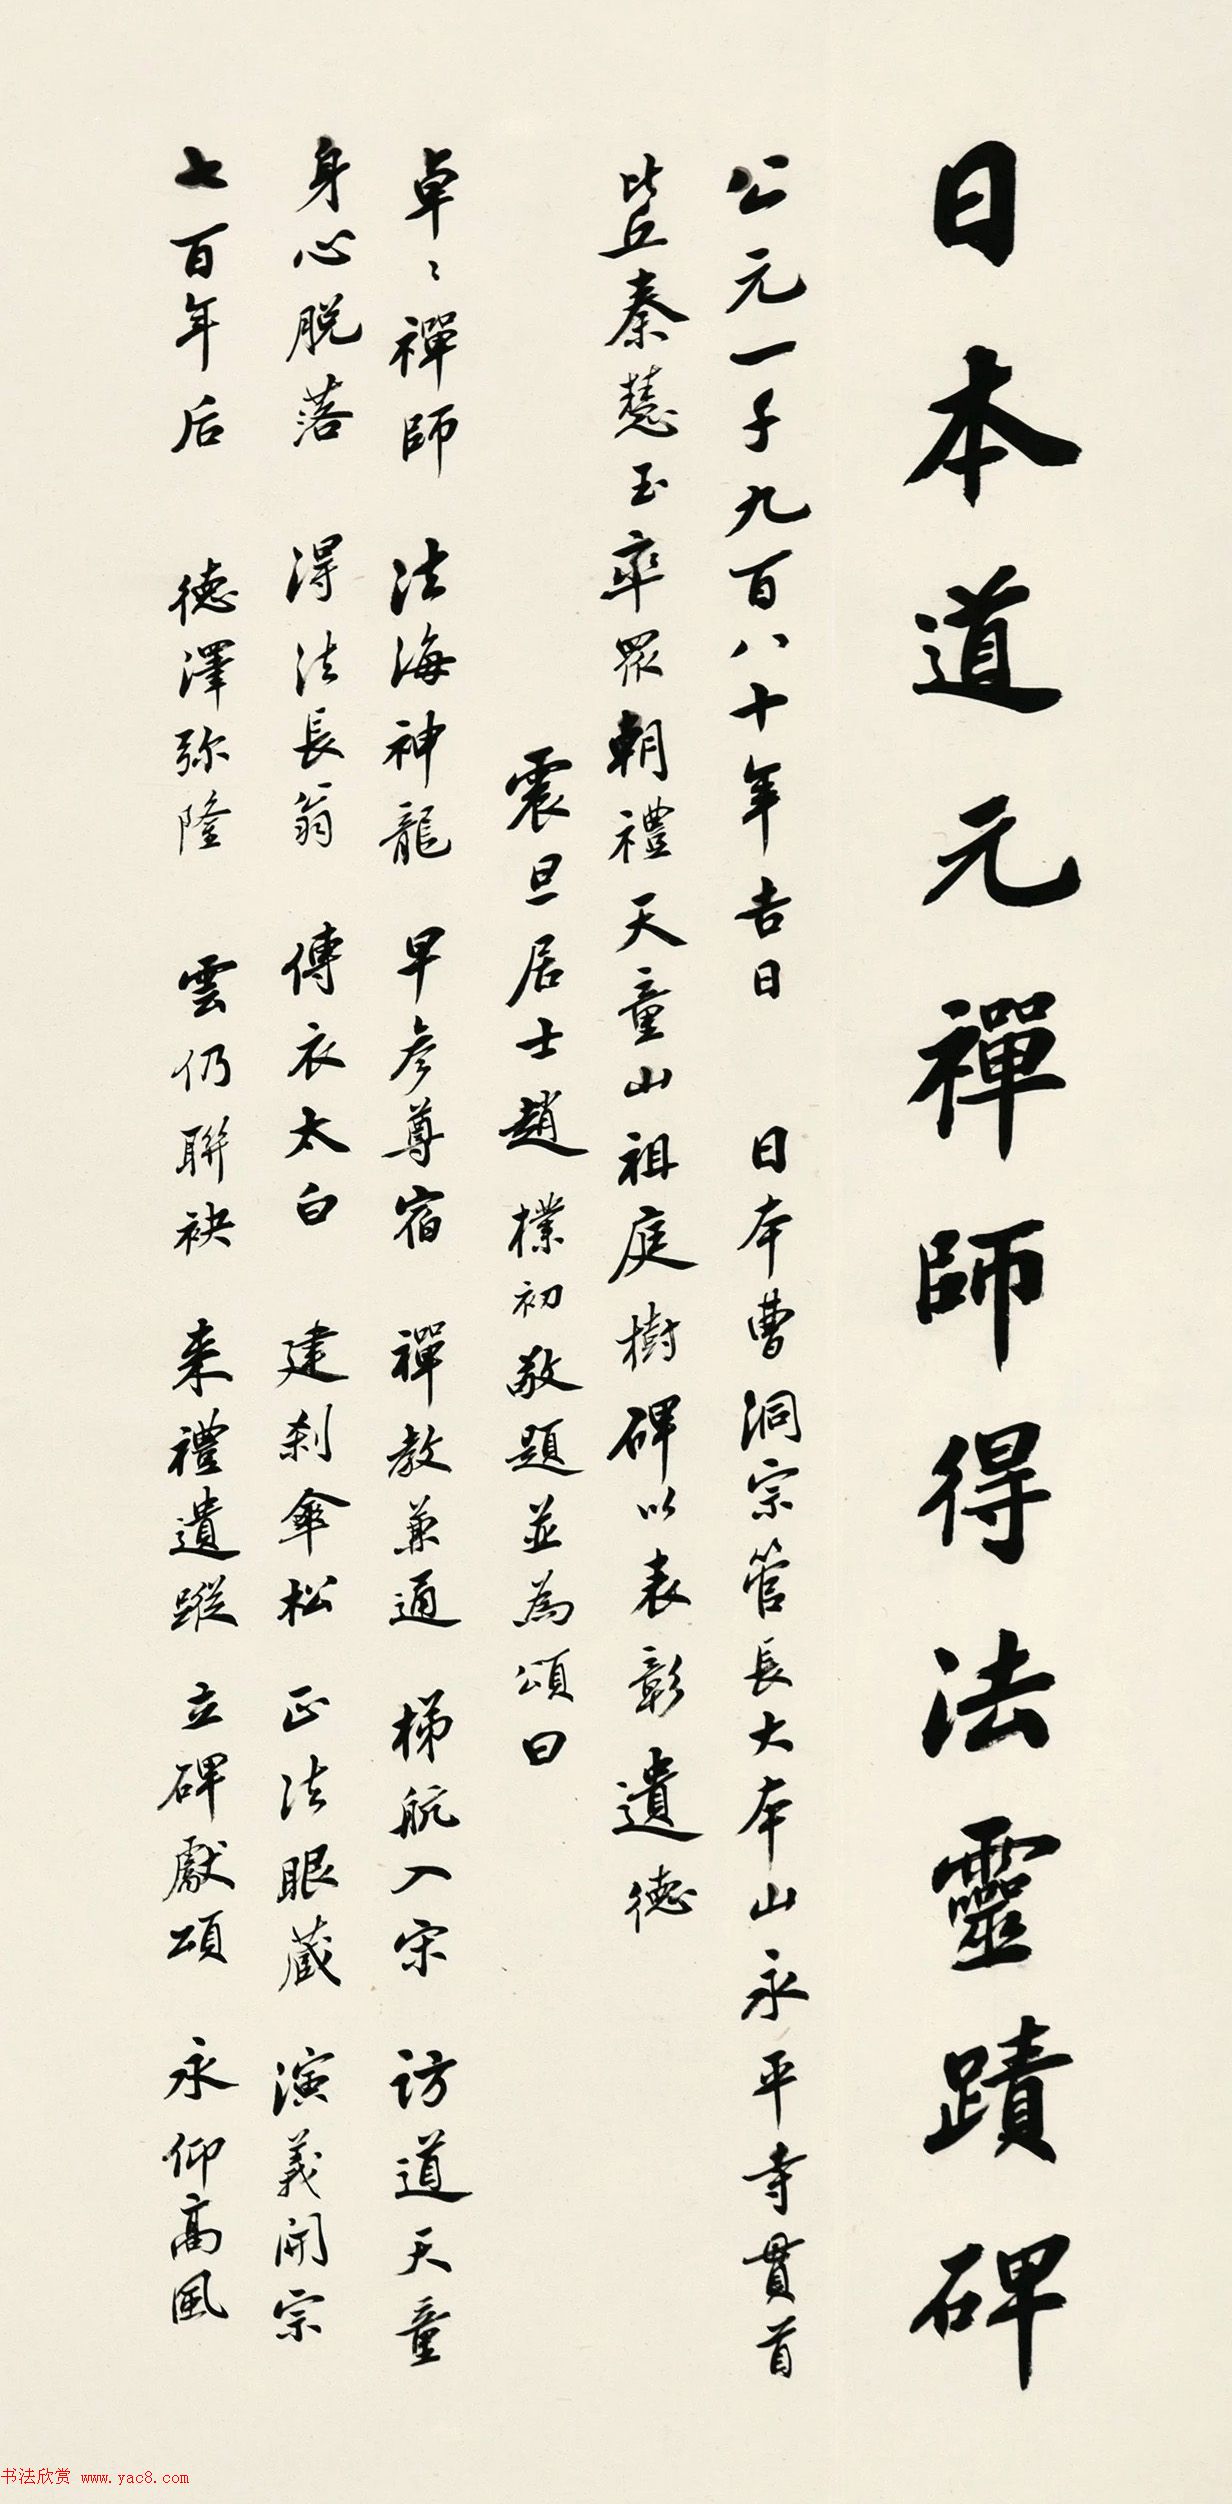 日本道元禪師得法靈蹟碑
公元一千九百八十年吉日 日本曹洞宗管長大本山永平寺貫首
比丘秦慧玉率眾朝禮天童山祖庭樹碑以表彰遺德
震旦居士趙樸初敬題並為頌曰
卓〻禪師 法海神龍 早參尊宿 禪教兼通 梯航入宋 訪道天童
身心脱落 得法長翁 傳衣太白 建刹傘松 正法眼藏 演義開宗
七百年后 德澤弥隆 雲仍聯袂 来禮遺蹤 立碑獻頌 永仰高風
书法欣赏 www.yac8.com